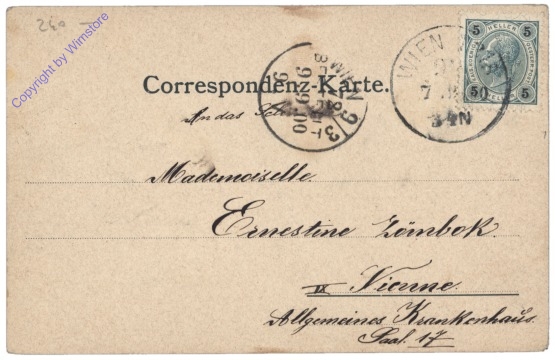 240 —
Copyright by Wimstore
5 HELLER 5
WIEN
7
3-4N
50 5
WIEN 9/3
6 9 00
Correspondenz-Karte.
An das
Mademoiselle.
Ernestine Zömbok.
IX Vienne.
Allgemeines Krankenhaus.
Saal 17